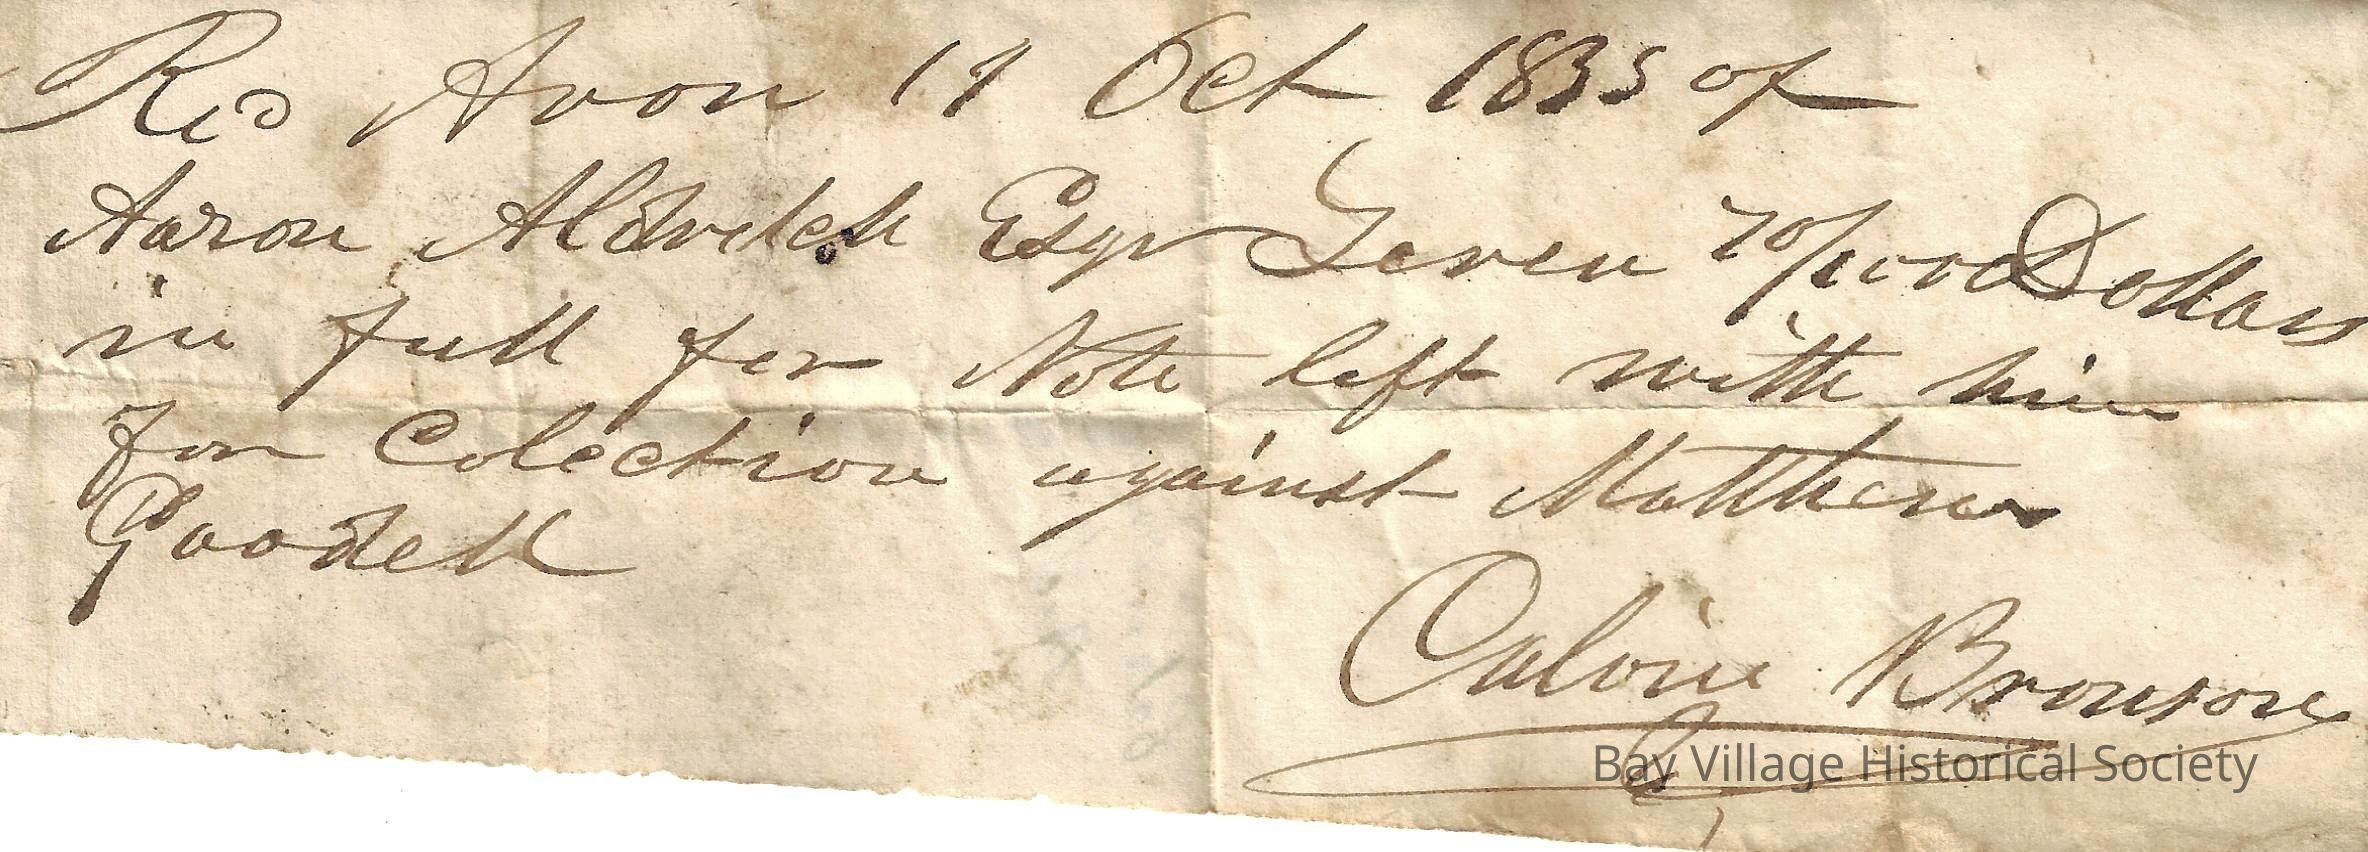 Recd Avon 19 Oct 1835 of
Aaron Aldrich Esqr Seven 70/100 Dollars
in full for Note left with him
for Colection against Matthew
Goodell
Calvin Bronson
Bay Village Historical Society